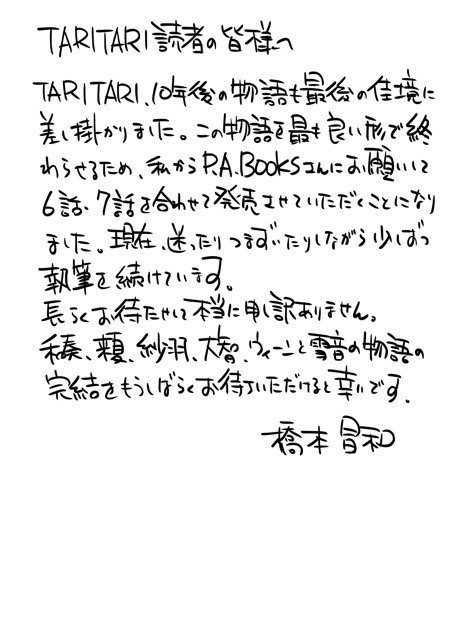 TARITARI読者の皆様へ
TARITARI、10年後の物語も最後の佳境に
差し掛かりました。この物語を最も良い形で終
わらせるため、私からP.A.BOOKSさんにお願いして
6話、7話を合わせて発売させていただくことになり
ました。現在、迷ったりつまずいたりしながら少しずつ
執筆を続けています。
長らくお待たせして本当に申し訳ありません。
和奏、来夏、紗羽、大智、ウィーンと雪音の物語の
完結をもうしばらくお待ちいただけると幸いです。
橋本昌和